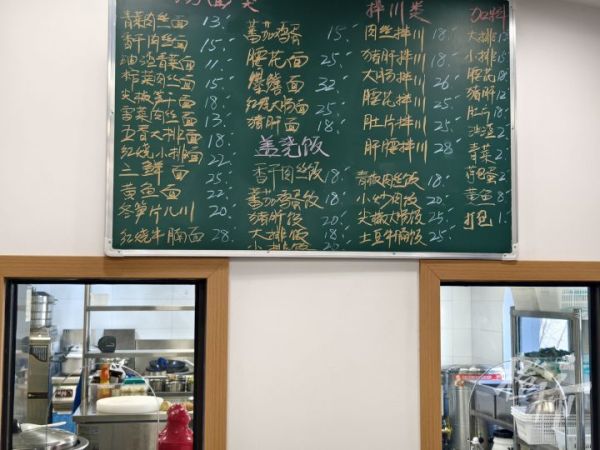 青菜肉丝面 13.
香干肉丝面 15.
油渣青菜面 11.
榨菜肉丝面 15.
尖椒笋干面 18.
雪菜肉丝面 13.
五香大排面 18.
红烧小排面 22.
三鲜面 25.
黄鱼面 22.
冬笋片儿川 20.
红烧牛腩面 28.
蕃茄鸡蛋 15.
腰花面 25.
爆鳝面 32.
红烧大肠面 25.
猪肝面 18.
盖浇饭
香干肉丝饭 18.
蕃茄鸡蛋饭 18.
猪肝饭 20.
大排饭 18.
小排饭
拌川类
肉丝拌川 18.
猪肝拌川 18.
大肠拌川 26.
腰花拌川 25.
肚片拌川 25.
肝腰拌川 28.
青椒肉丝饭 18.
小炒肉饭 20.
尖椒大肠饭 25.
土豆牛腩饭 25.
加料
大排
小排
腰花
猪肝
肚片
油渣
青菜
荷包蛋 2
黄鱼 8
打包 1.